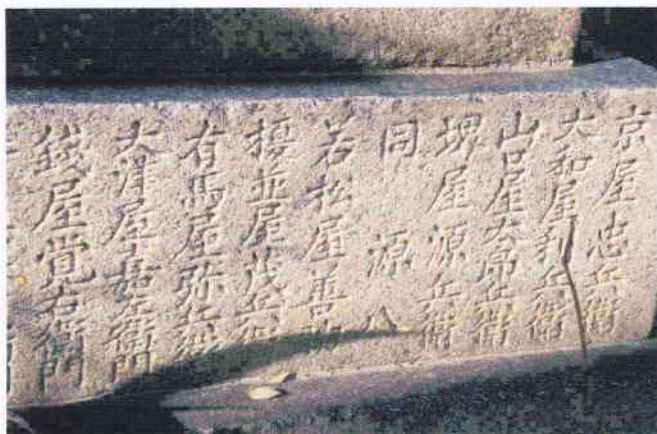 京屋忠兵衛
大和屋利兵衛
山口屋太郎兵衛
堺屋源兵衛
同 源八
若松屋善
榎並屋茂兵衛
有馬屋弥兵衛
大津屋嘉左衛門
銭屋覚右衛門